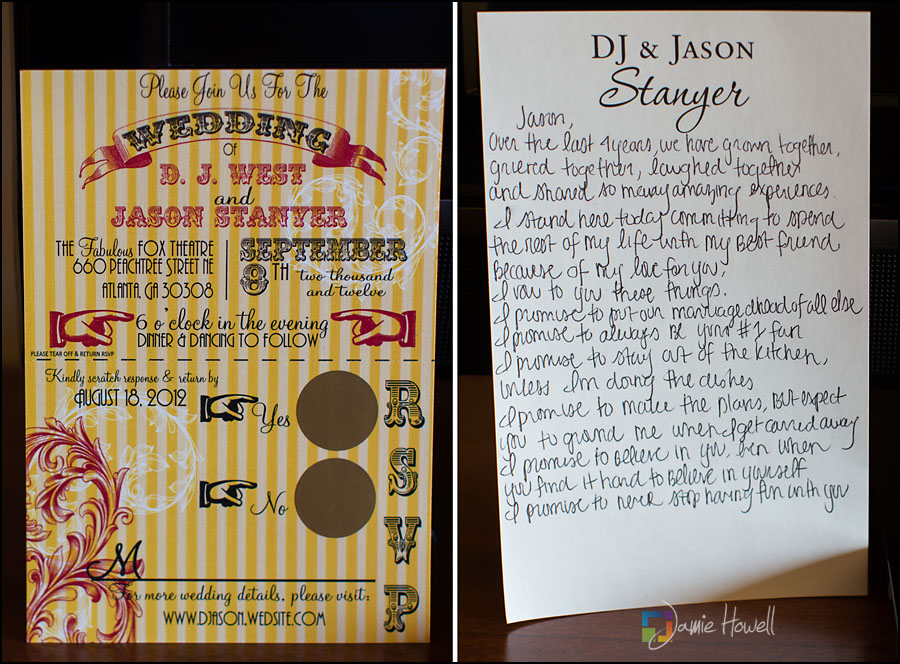 Please Join Us For The
WEDDING
OF
D. J. WEST
and
JASON STANYER
THE Fabulous FOX THEATRE
660 PEACHTREE STREET NE
ATLANTA, GA 30308
SEPTEMBER
8TH two thousand
and twelve
6 o'clock in the evening
DINNER & DANCING TO FOLLOW
PLEASE TEAR OFF & RETURN RSVP
Kindly scratch response & return by
AUGUST 18, 2012
Yes
No
RSVP
M
For more wedding details, please visit:
WWW.DJASON.WEDSITE.COM
DJ & JASON
Stanyer
Jason,
Over the last 4 years, we have grown together,
grieved together, laughed together
and shared so many amazing experiences.
I stand here today committing to spend
the rest of my life with my best friend
Because of my love for you,
I vow to you these things.
I promise to put our marriage ahead of all else
I promise to always be your #1 fan
I promise to stay out of the kitchen,
unless I'm doing the dishes
I promise to make the plans, But expect
you to ground me when I get carried away
I promise to believe in you, even when
you find it hard to believe in yourself
I promise to never stop having fun with you
Jamie Howell